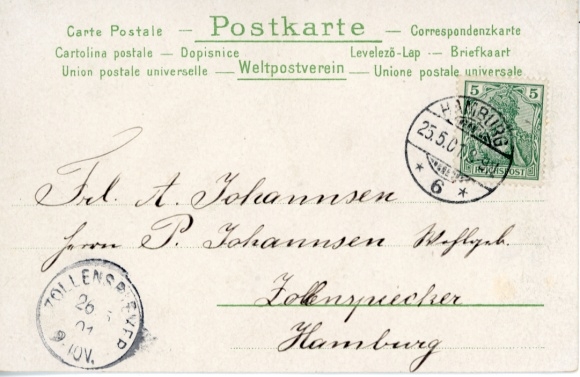 Carte Postale — Postkarte — Correspondenzkarte
Cartolina postale — Dopisnice Levelező-Lap — Briefkaart
Union postale universelle — Weltpostverein — Unione postale universale
5 5
HAMBURG
25.5.0
* 6 *
REICHSPOST
Frl. A. Johannsen
Herrn P. Johannsen Wohlgeb.
Zollenspiecker
Hamburg
ZOLLENSPIEKER
26
01